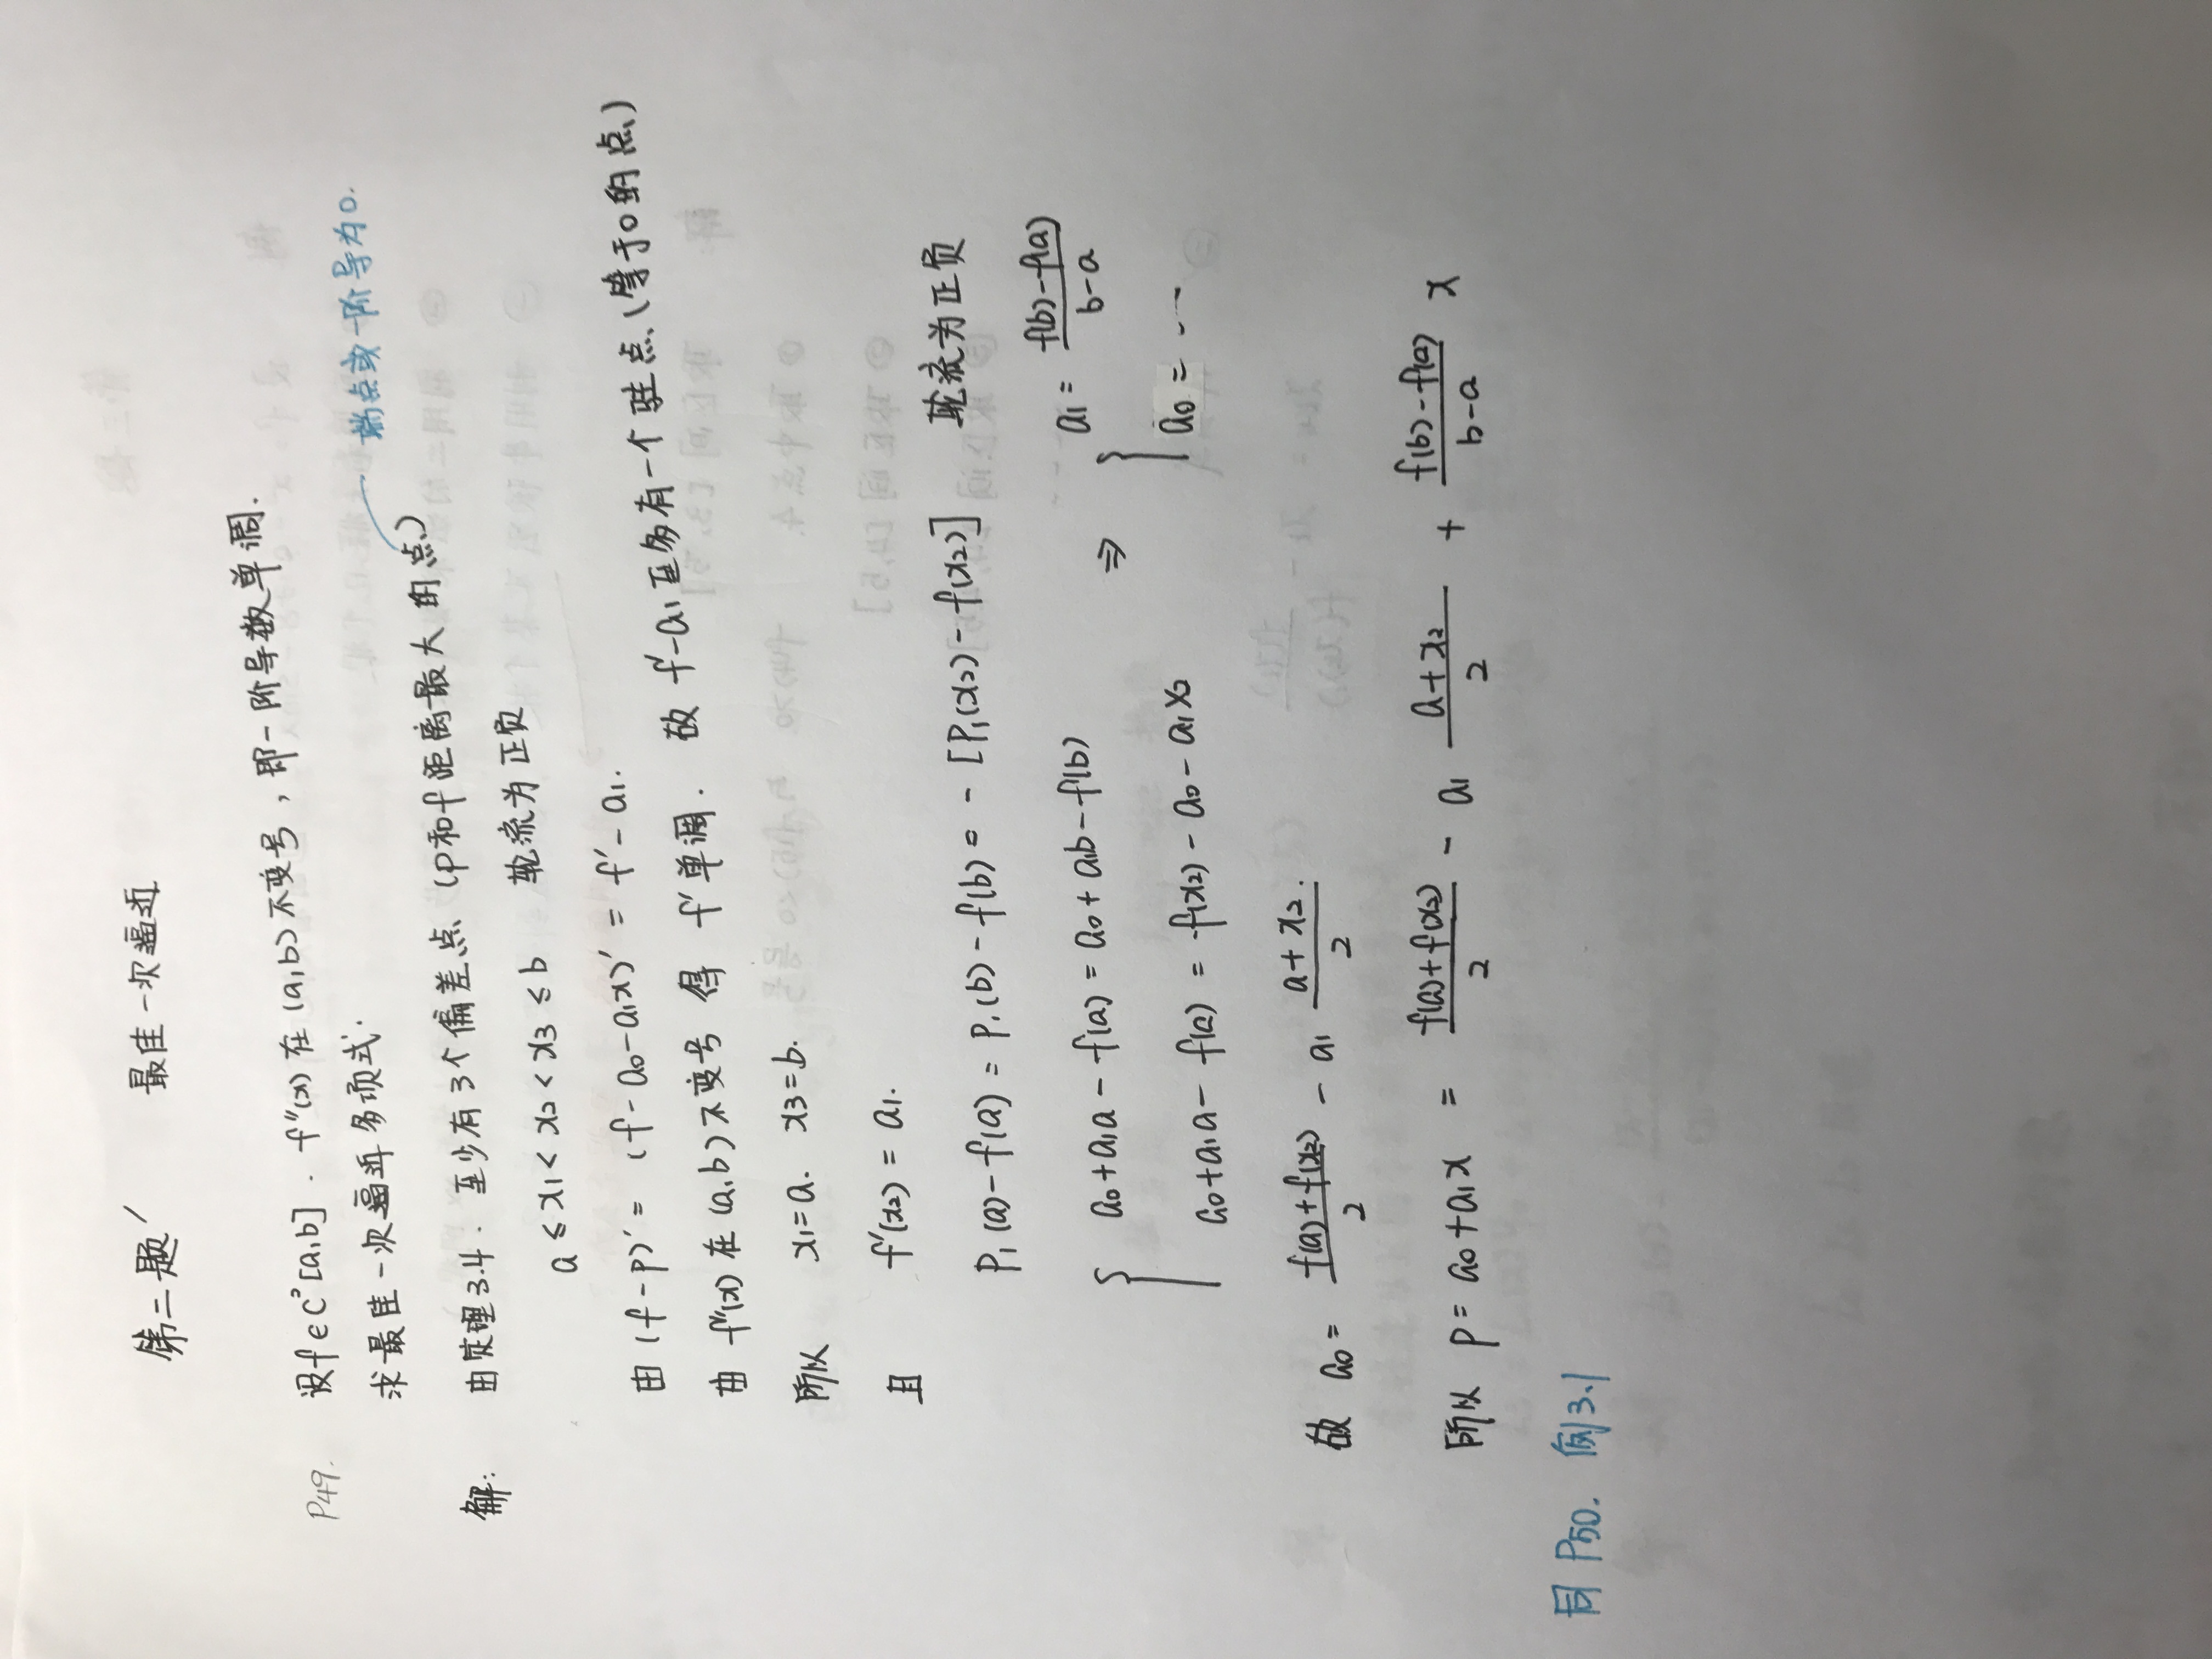 第二题' 最佳一次逼近
P49. 设f∈C²[a,b]. f''(x)在(a,b)不变号,即一阶导数单调.
求最佳一次逼近多项式.
端点或一阶导为0.
解: 由定理3.4. 至少有3个偏差点(p和f距离最大的点)
a ≤ x₁ < x₂ < x₃ ≤ b 轮流为正负
由 (f-p)' = (f-a₀-a₁x)' = f'-a₁.
由 f''(x)在(a,b)不变号 得 f'单调. 故 f'-a₁至多有一个驻点(等于0的点)
所以 x₁=a. x₃=b.
且 f'(x₂) = a₁.
P₁(a)-f(a) = P₁(b)-f(b) = -[P₁(x₂)-f(x₂)] 轮流为正负
{ a₀+a₁a-f(a) = a₀+a₁b-f(b) ⇒ { a₁ = \frac{f(b)-f(a)}{b-a}
a₀+a₁a-f(a) = f(x₂)-a₀-a₁x₂ a₀ = ----
故 a₀ = \frac{f(a)+f(x₂)}{2} - a₁ \frac{a+x₂}{2}.
所以 p = a₀+a₁x = \frac{f(a)+f(x₂)}{2} - a₁ \frac{a+x₂}{2} + \frac{f(b)-f(a)}{b-a} x
同 P50. 例3.1